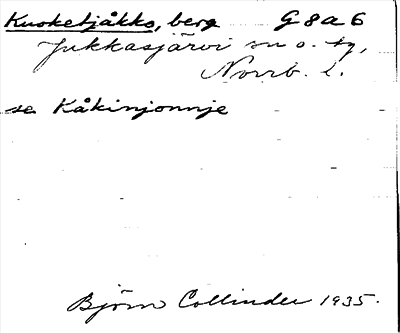 Kuoketjåkko, berg G 8 a 6
Jukkasjärvi sn o. tg,
Norrb. l.
se Kåkinjonnje
Björn Collinder 1935.